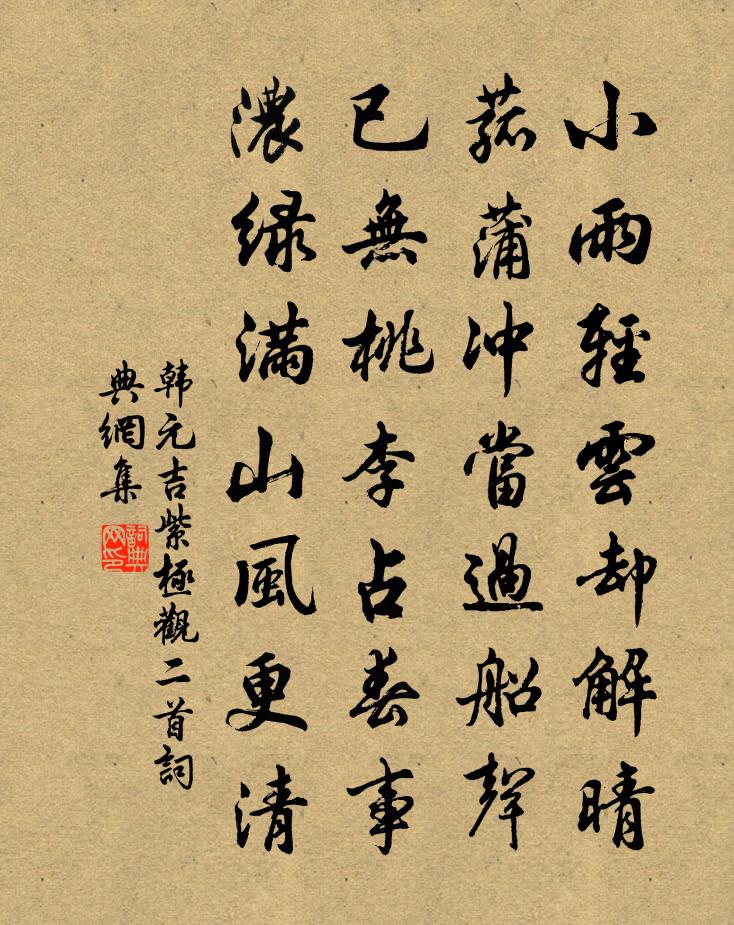 小雨輕雲却解晴
菰蒲冲當過船聲
已無桃李占春事
濃緑滿山風更清
韩元吉紫極觀二首詞
典網集
詞典网印